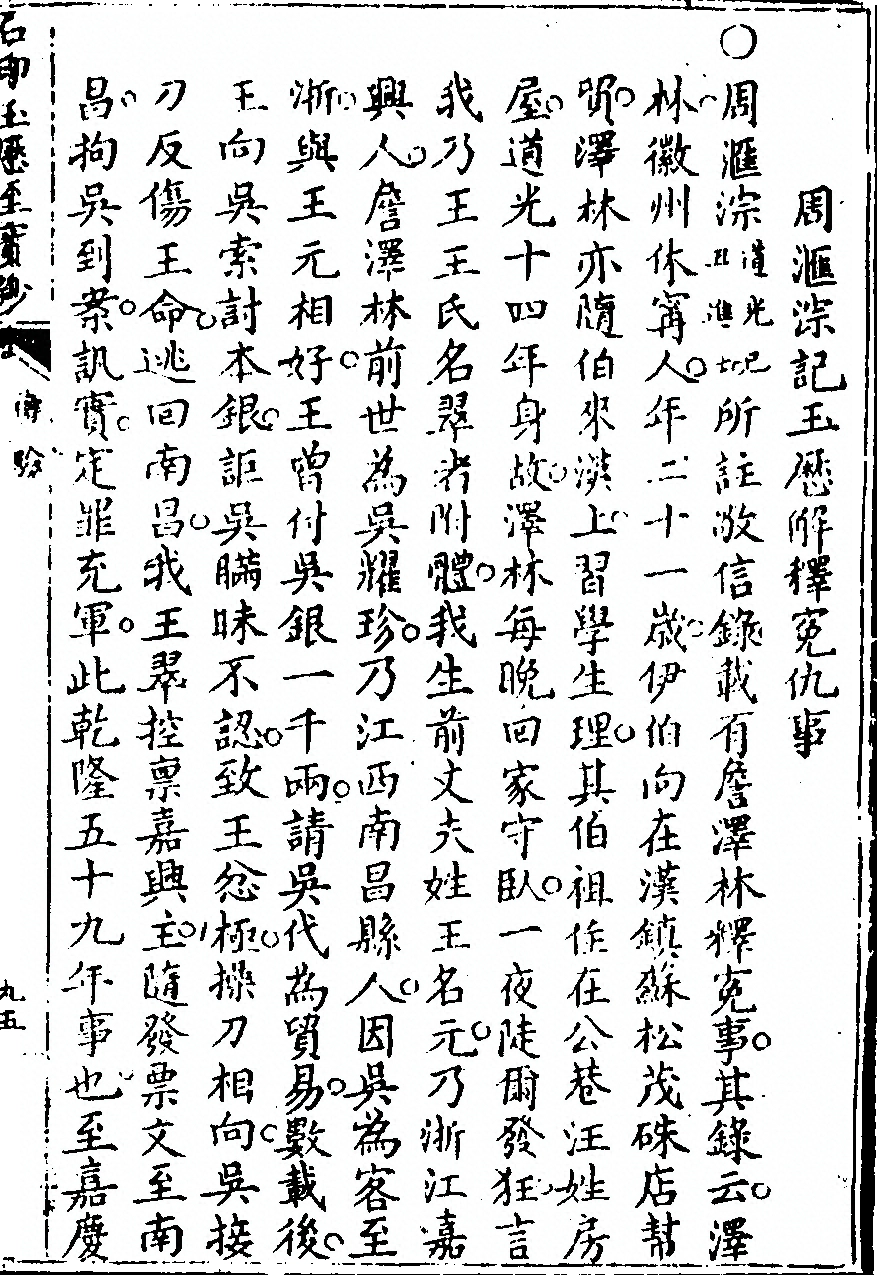 周滙淙記玉歷解釋冤仇事
○周滙淙道光己丑進士所註敬信錄載有詹澤林釋冤事○其錄云○澤
林○徽州休寗人○年二十一歲○伊伯向在漢鎮蘇松茂硃店幫
貿○澤林亦隨伯來漢上○習學生理○其伯祖住在公巷汪姓房
屋○道光十四年身故○澤林每晚回家守臥○一夜陡爾發狂○言
我乃王王氏名翠者附體○我生前丈夫姓王名元○乃浙江嘉
興人○詹澤林前世為吳耀珍○乃江西南昌縣人○因吳為客至
浙○與王元相好○王曾付吳銀一千兩○請吳代為貿易○數載後○
王向吳索討本銀○詎吳瞞昧不認○致王忿極○操刀相向○吳接
刀反傷王命○逃回南昌○我王翠控稟嘉興主○隨發票文至南
昌○拘吳到案○訊實○定罪充軍○此乾隆五十九年事也○至嘉慶
石印玉歷至寶鈔
九五